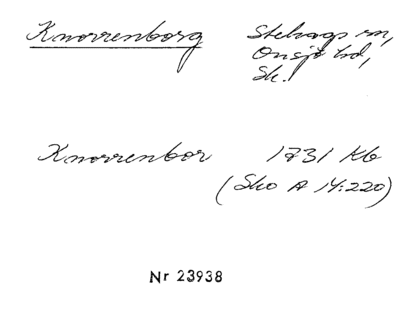 Knorrenborg Stehags sn,
Onsjö hd,
Sk.
Knorrenbor 1731 Kb
(Sko A 14:220)
Nr 23938